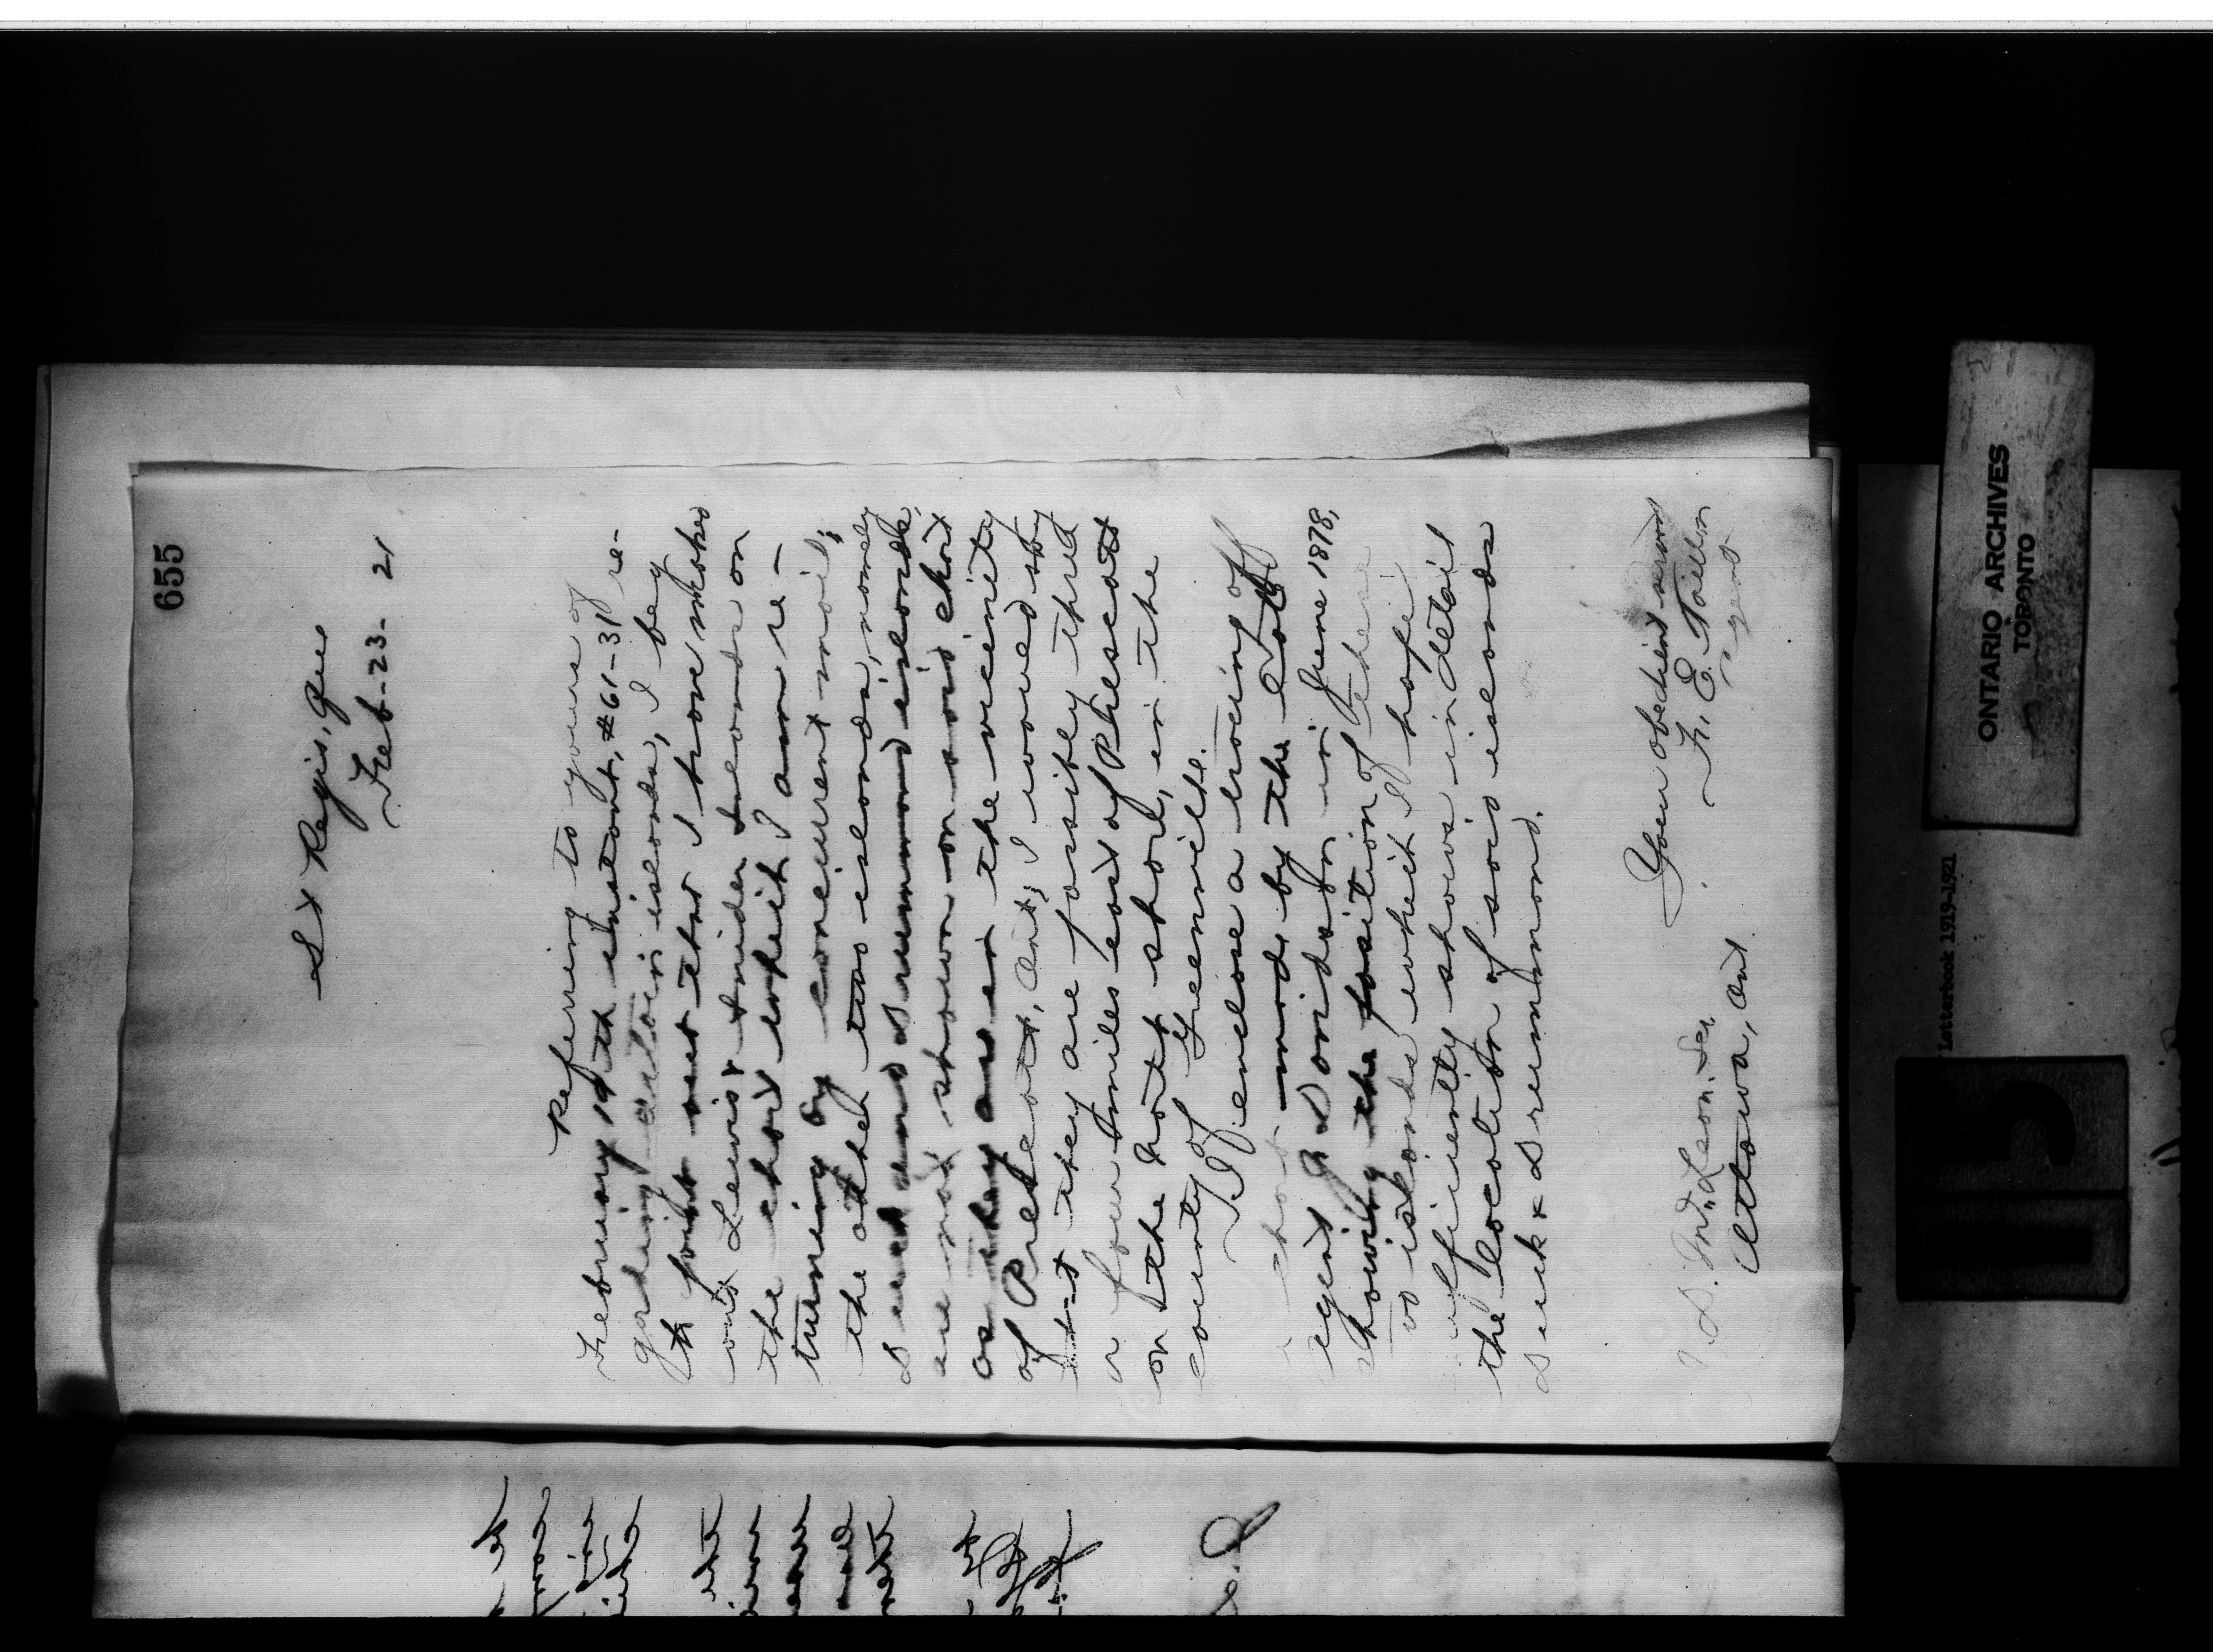 655
St Regis, Que
Feb-23-21
Referring to yours of
February 19th instant, #61-31 re-
garding certain islands, I beg
to point out that I have marked
out Lewis & Snider Islands on
the chart which I am re-
turning by concurrent mail;
the other two islands, namely
and Drummond islands,
are not shown on said chart
as they are in the vicinity
of Prescott, Ont; I would say
that they are possibly three
or four miles east of Prescott
on the north shore, in the
county of Grenville.
I enclose a tracing off
a chart made by the late
agent Davidson in June 1878,
showing the position of these
two islands which I hope
sufficiently shows in detail
the location of said islands
& Drummond.
Your obedient servant
F. E. Taillon
Agent
J. D. McLean. Sec.
Ottawa, Ont
ONTARIO ARCHIVES
TORONTO
Letterbook 1919-1921